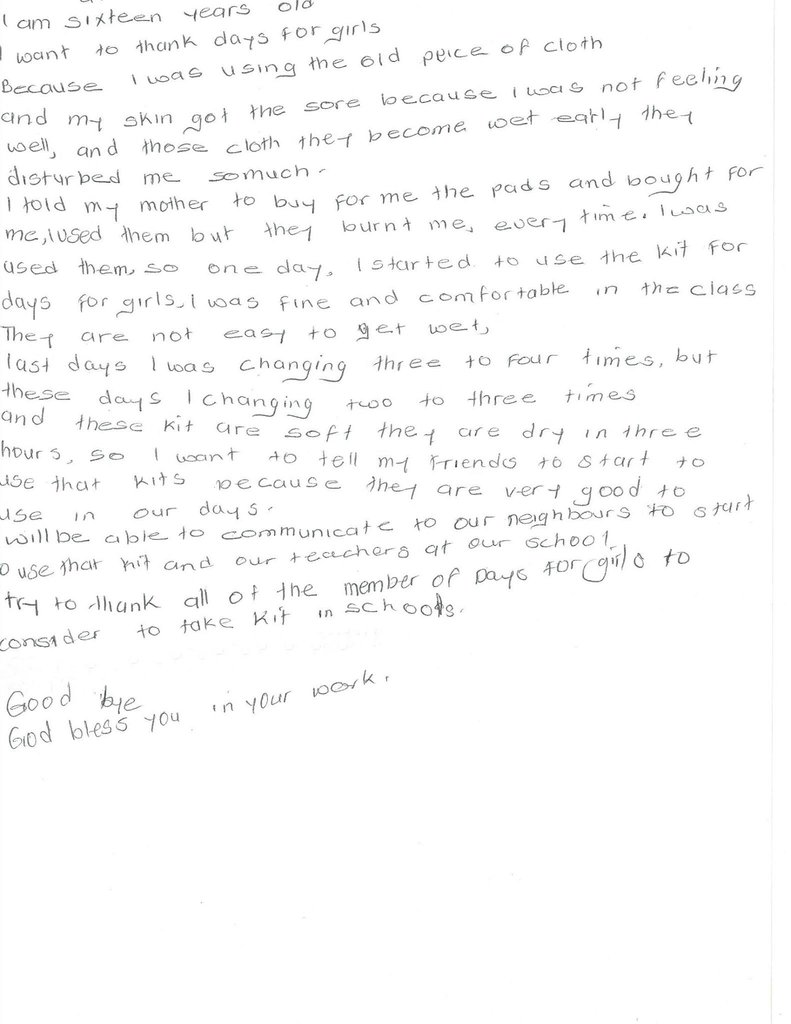 I am sixteen years old
I want to thank days for girls
Because I was using the old peice of cloth
and my skin got the sore because I was not feeling
well, and those cloth they become wet early they
disturbed me somuch.
I told my mother to buy for me the pads and bought for
me, I used them but they burnt me, every time. I was
used them, so one day, I started to use the kit for
days for girls, I was fine and comfortable in the class
They are not easy to get wet,
last days I was changing three to four times, but
these days I changing two to three times
and these kit are soft they are dry in three
hours, so I want to tell my friends to start to
use that kits because they are very good to
use in our days.
will be able to communicate to our neighbours to start
o use that kit and our teachers at our school
try to thank all of the member of Days for girls to
consider to take kit in schools.
Good bye
God bless you in your work.